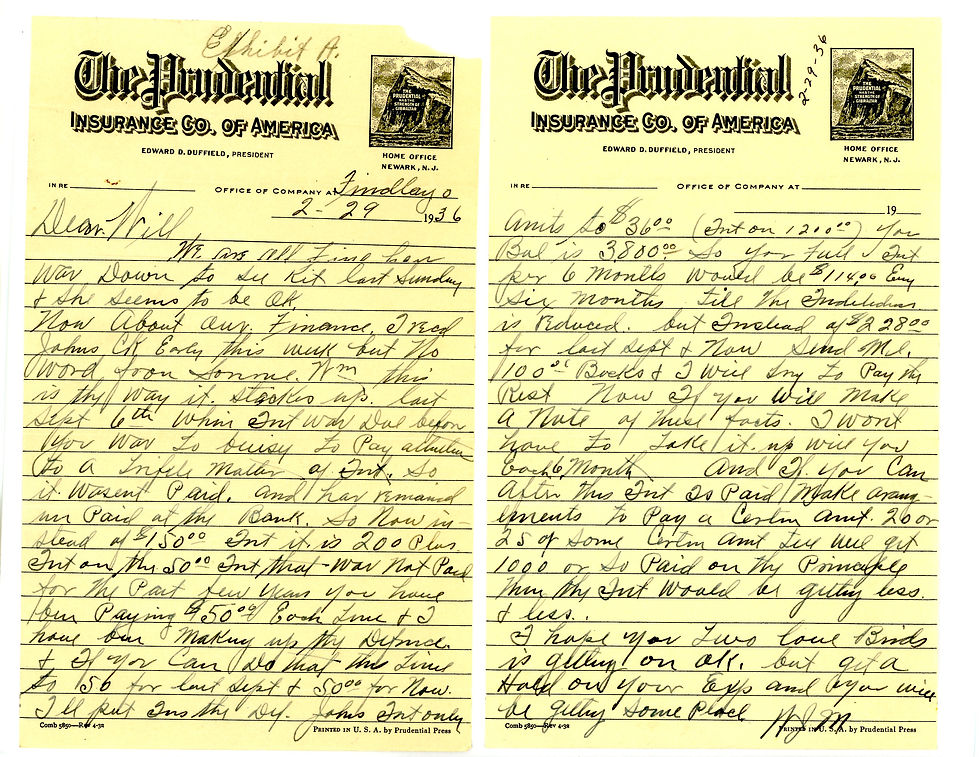 Exhibit A.
The Prudential
INSURANCE CO. OF AMERICA
EDWARD D. DUFFIELD, PRESIDENT
THE PRUDENTIAL HAS THE STRENGTH OF GIBRALTAR
HOME OFFICE
NEWARK, N. J.
IN RE
OFFICE OF COMPANY AT Findlay O
2-29 1936
Dear Will
We are all Fine her
War Down to see Kit last Sunday
& she seems to be OK
Now About our Finance, I recd
Johns Ck Early this week but No
word from Sonnie. Wm this
is the way it stackes up. last
Sept 6th When Int War Due before
You War to buisy to Pay attention
to a trifele Matter of Int. So
it Wasent Paid. and har remained
un Paid at the Bank. So Now in-
stead of $150.00 Int it is 200 Plus
Int on the 50.00 Int that War Not Paid
for the Past few Years you have
ben Paying $50.00 Each time & I
have ben Making up the Difence
& If You Can Do that this time
to 50 for last Sept & 50.00 for Now.
I'll put Ins the Dif. Johns Int only
Comb 5850—Rev 4-32
PRINTED IN U. S. A. by Prudential Press
2-29-36
The Prudential
INSURANCE CO. OF AMERICA
EDWARD D. DUFFIELD, PRESIDENT
THE PRUDENTIAL HAS THE STRENGTH OF GIBRALTAR
HOME OFFICE
NEWARK, N. J.
IN RE
OFFICE OF COMPANY AT
19
Amts to $36.00 (Int on 1200.00) You
Bal is 3800.00 So your Full Int
per 6 Months would be $114.00 Evry
Six months till the Indebtedness
is reduced. but Instead of $228.00
for last Sept & Now Send Me.
100.00 Bucks & I will try to Pay the
Rest Now If you Will Make
a Note of these facts. I wont
have to take it up will you
Each 6 Month And If you Can
After this Int Is Paid Make arang-
ements to Pay a Certin amt. 20 or
25 of some Certin amt till we get
1000 or so Paid on the Princiaple
then the Int would be getting less
& less.
I hope you two love Birds
is getting on OK. but get a
Hold on your Exps and you will
be getting some Place
WJM
Comb 5850—Rev 4-32
PRINTED IN U. S. A. by Prudential Press